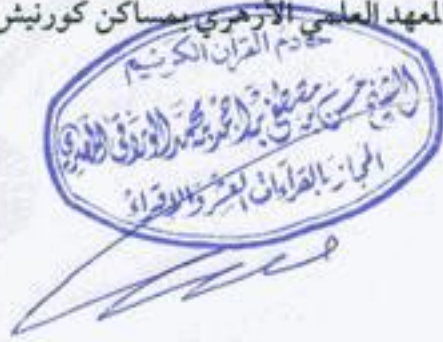 المعهد العلمي الأزهري بمساكن كورنيش
خادم القرآن الكريم
الشيخ حسن بن مصطفى بن أحمد بن محمد الوراقي المصري
المجاز بالقراءات العشر والإقراء